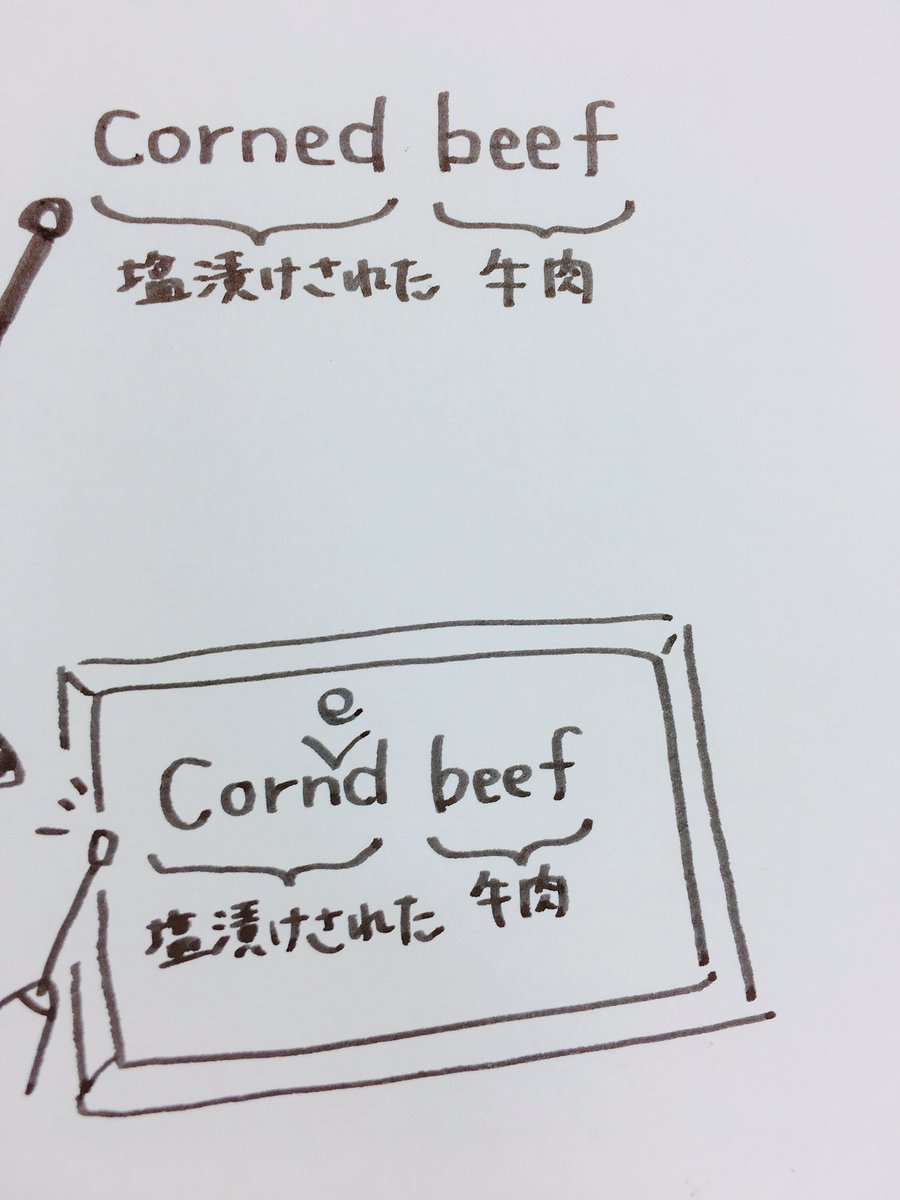 Corned beef
塩漬けされた 牛肉
e
Cornd beef
塩漬けされた 牛肉